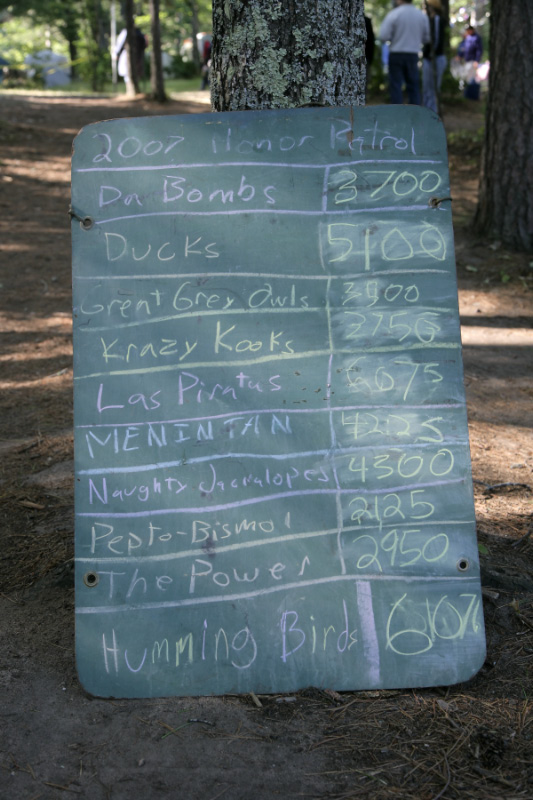 2007 Honor Patrol
Da Bombs 3700
Ducks 5100
Great Grey Owls 3900
Krazy Kooks
Las Piratas 6075
MENINTAN 4225
Naughty Jackalopes 4300
Pepto-Bismol 2125
The Power 2950
Humming Birds